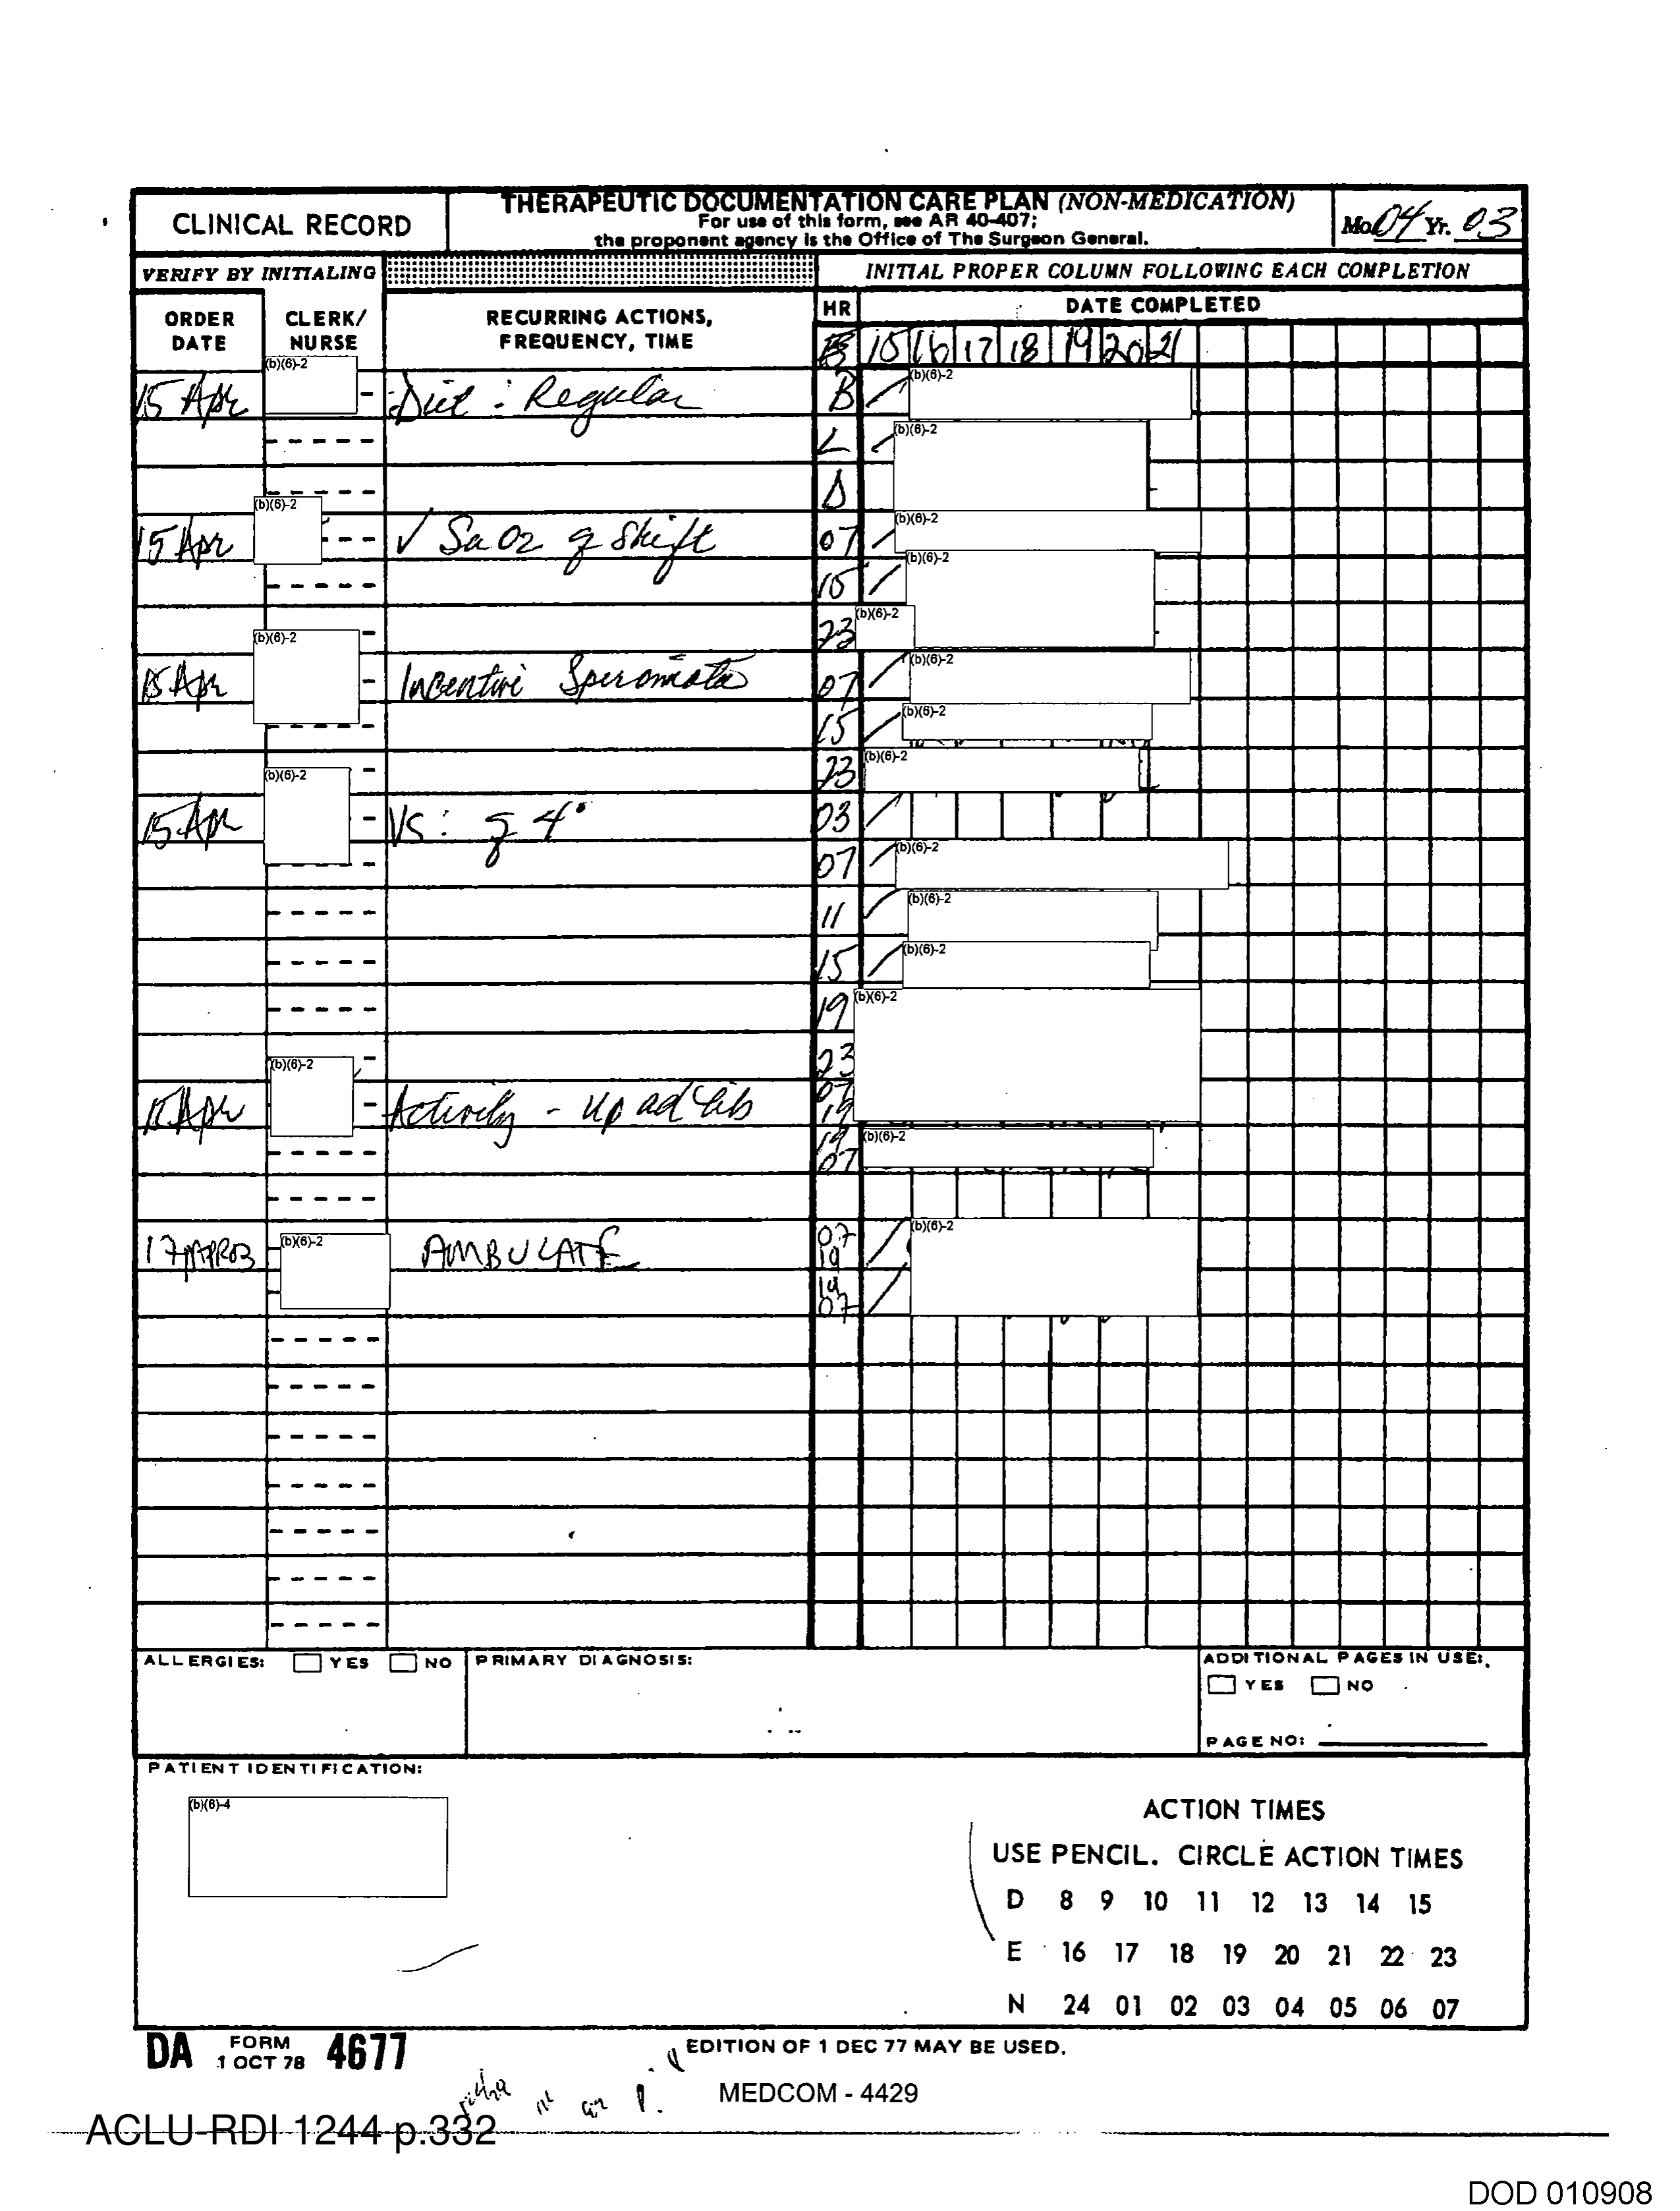 CLINICAL RECORD
THERAPEUTIC DOCUMENTATION CARE PLAN (NON-MEDICATION)
For use of this form, see AR 40-407;
the proponent agency is the Office of The Surgeon General.
Mo. 04 Yr. 03
VERIFY BY INITIALING
INITIAL PROPER COLUMN FOLLOWING EACH COMPLETION
ORDER DATE
CLERK/ NURSE
RECURRING ACTIONS, FREQUENCY, TIME
HR
DATE COMPLETED
15 16 17 18 19 20 21
(b)(6)-2
15 Apr Diet : Regular B (b)(6)-2
L (b)(6)-2
D
(b)(6)-2
15 Apr √ SaO2 q shift 07 (b)(6)-2
15 (b)(6)-2
23 (b)(6)-2
(b)(6)-2
15 Apr Incentive 07 (b)(6)-2
15 (b)(6)-2
23 (b)(6)-2
(b)(6)-2
15 Apr VS: q 4° 03
07 (b)(6)-2
11 (b)(6)-2
15 (b)(6)-2
19 (b)(6)-2
23
(b)(6)-2
15 Apr Activity - Up ad lib 07 19
19 07 (b)(6)-2
17 APR03 (b)(6)-2 AMBULATE 07 19 (b)(6)-2
19 07
ALLERGIES: YES NO
PRIMARY DIAGNOSIS:
ADDITIONAL PAGES IN USE:
YES NO
PAGE NO:
PATIENT IDENTIFICATION:
(b)(6)-4
ACTION TIMES
USE PENCIL. CIRCLE ACTION TIMES
D 8 9 10 11 12 13 14 15
E 16 17 18 19 20 21 22 23
N 24 01 02 03 04 05 06 07
DA FORM 1 OCT 78 4677
EDITION OF 1 DEC 77 MAY BE USED.
MEDCOM - 4429
ACLU-RDI 1244 p.332
DOD 010908